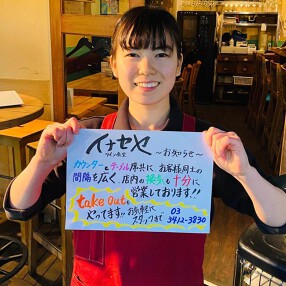 イナセヤ
ワイン食堂
〜お知らせ〜
カウンター・テーブル席共に、お客様同士の
間隔を広く、店内の換気も十分に
営業しております!!
take Outも
やってます!! お気軽に
スタッフまで
03
3412-3830